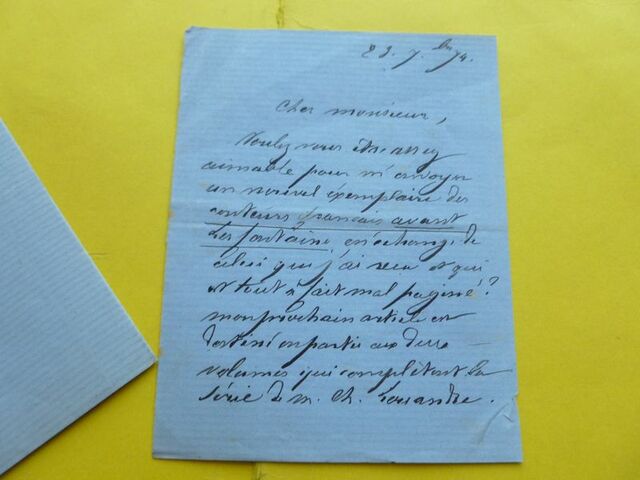 23. 7bre 74.
Cher monsieur,
Voulez vous être assez
aimable pour m'envoyer
un nouvel exemplaire des
conteurs français avant
La fontaine, en échange de
celui qui j'ai reçu et qui
est tout à fait mal paginé?
mon prochain article est
destiné en partie aux deux
volumes qui complètent la
série de M. Ch. Louandre.